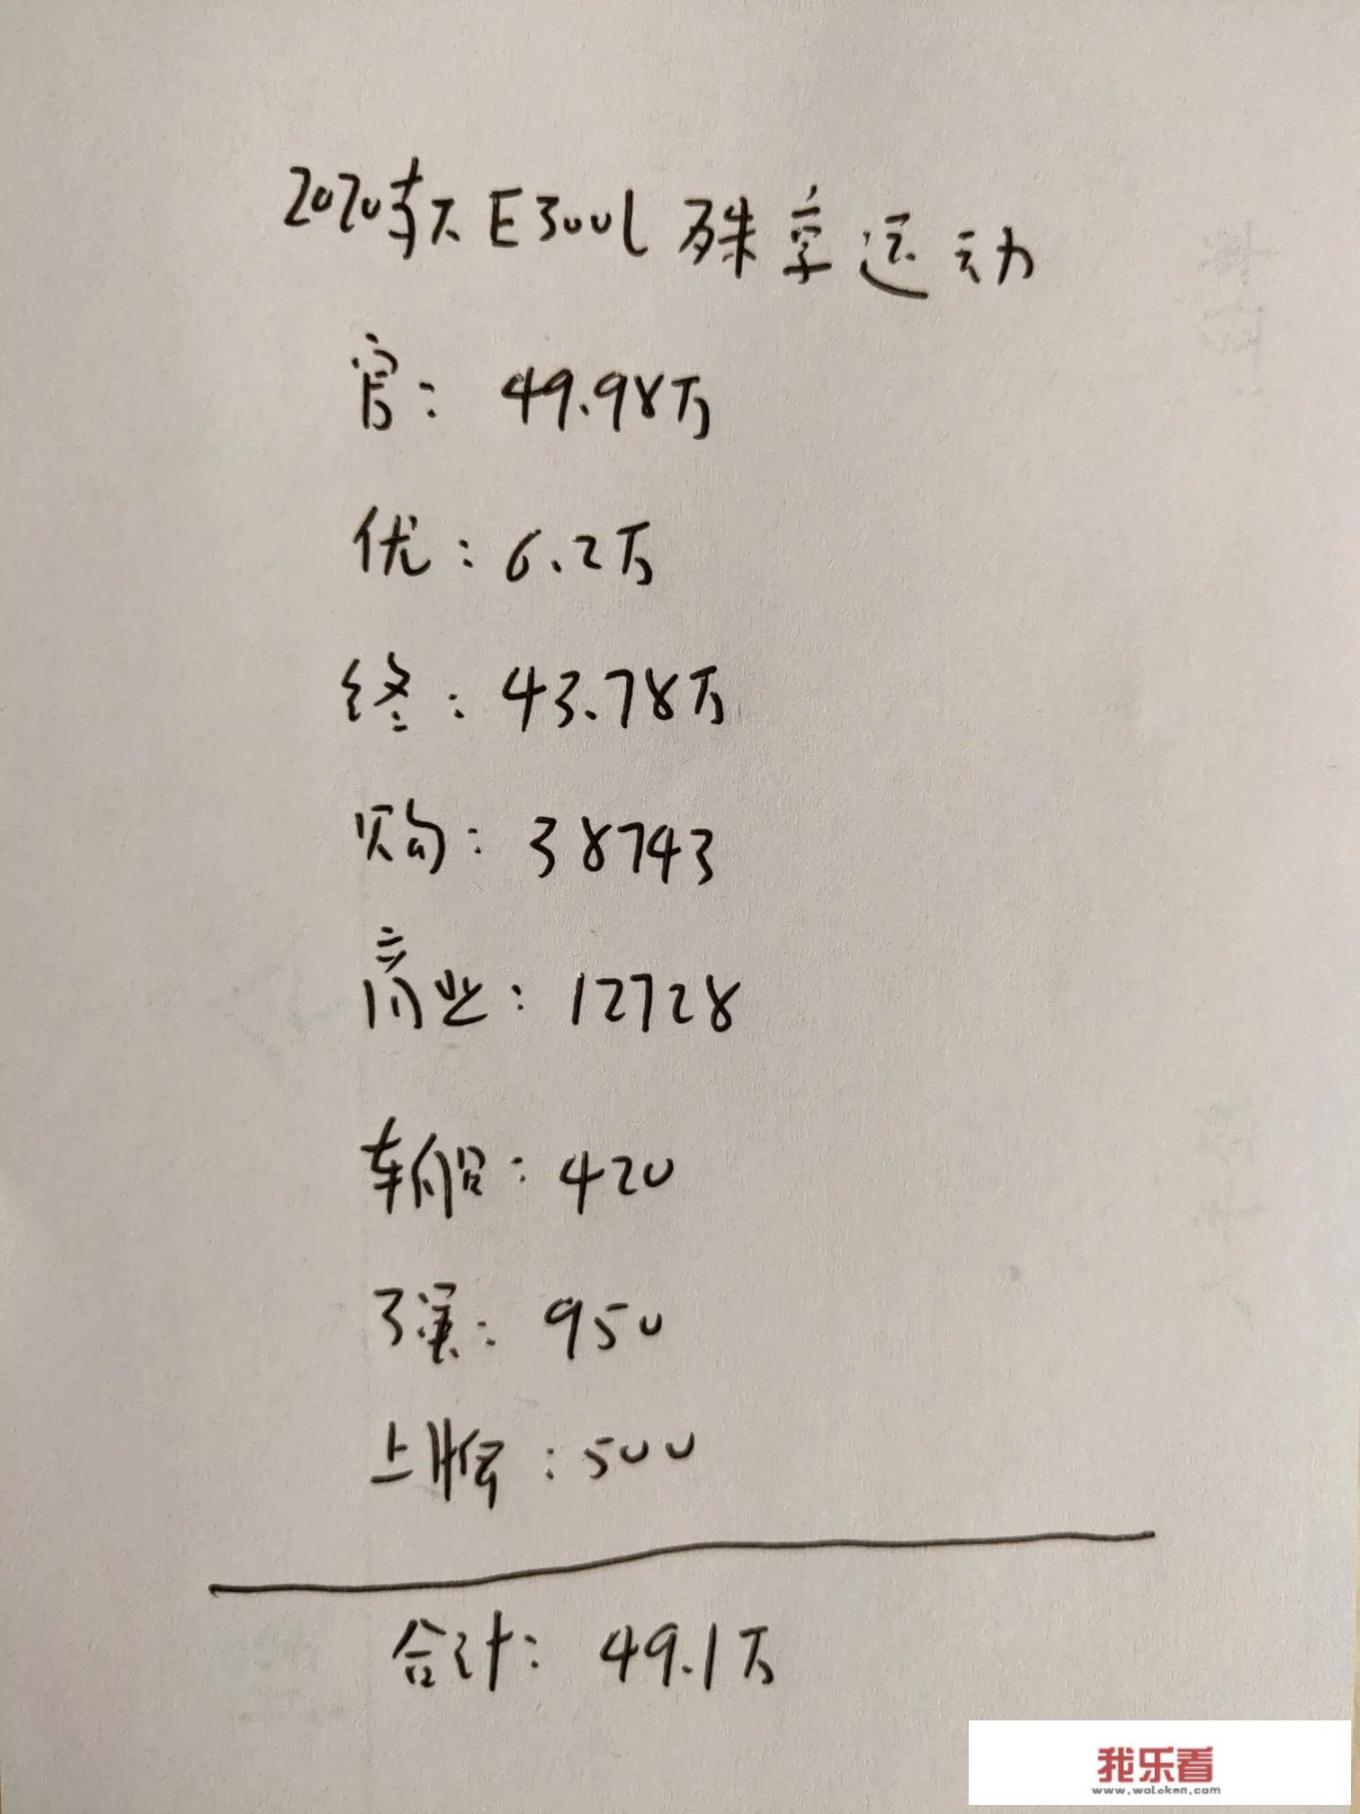 2020款E300L 殊享运动
官：49.98万
优：6.2万
终：43.78万
购：38743
商业：12728
车船：420
了强：950
上牌：500
合计：49.1万
我乐看
www.woleken.com